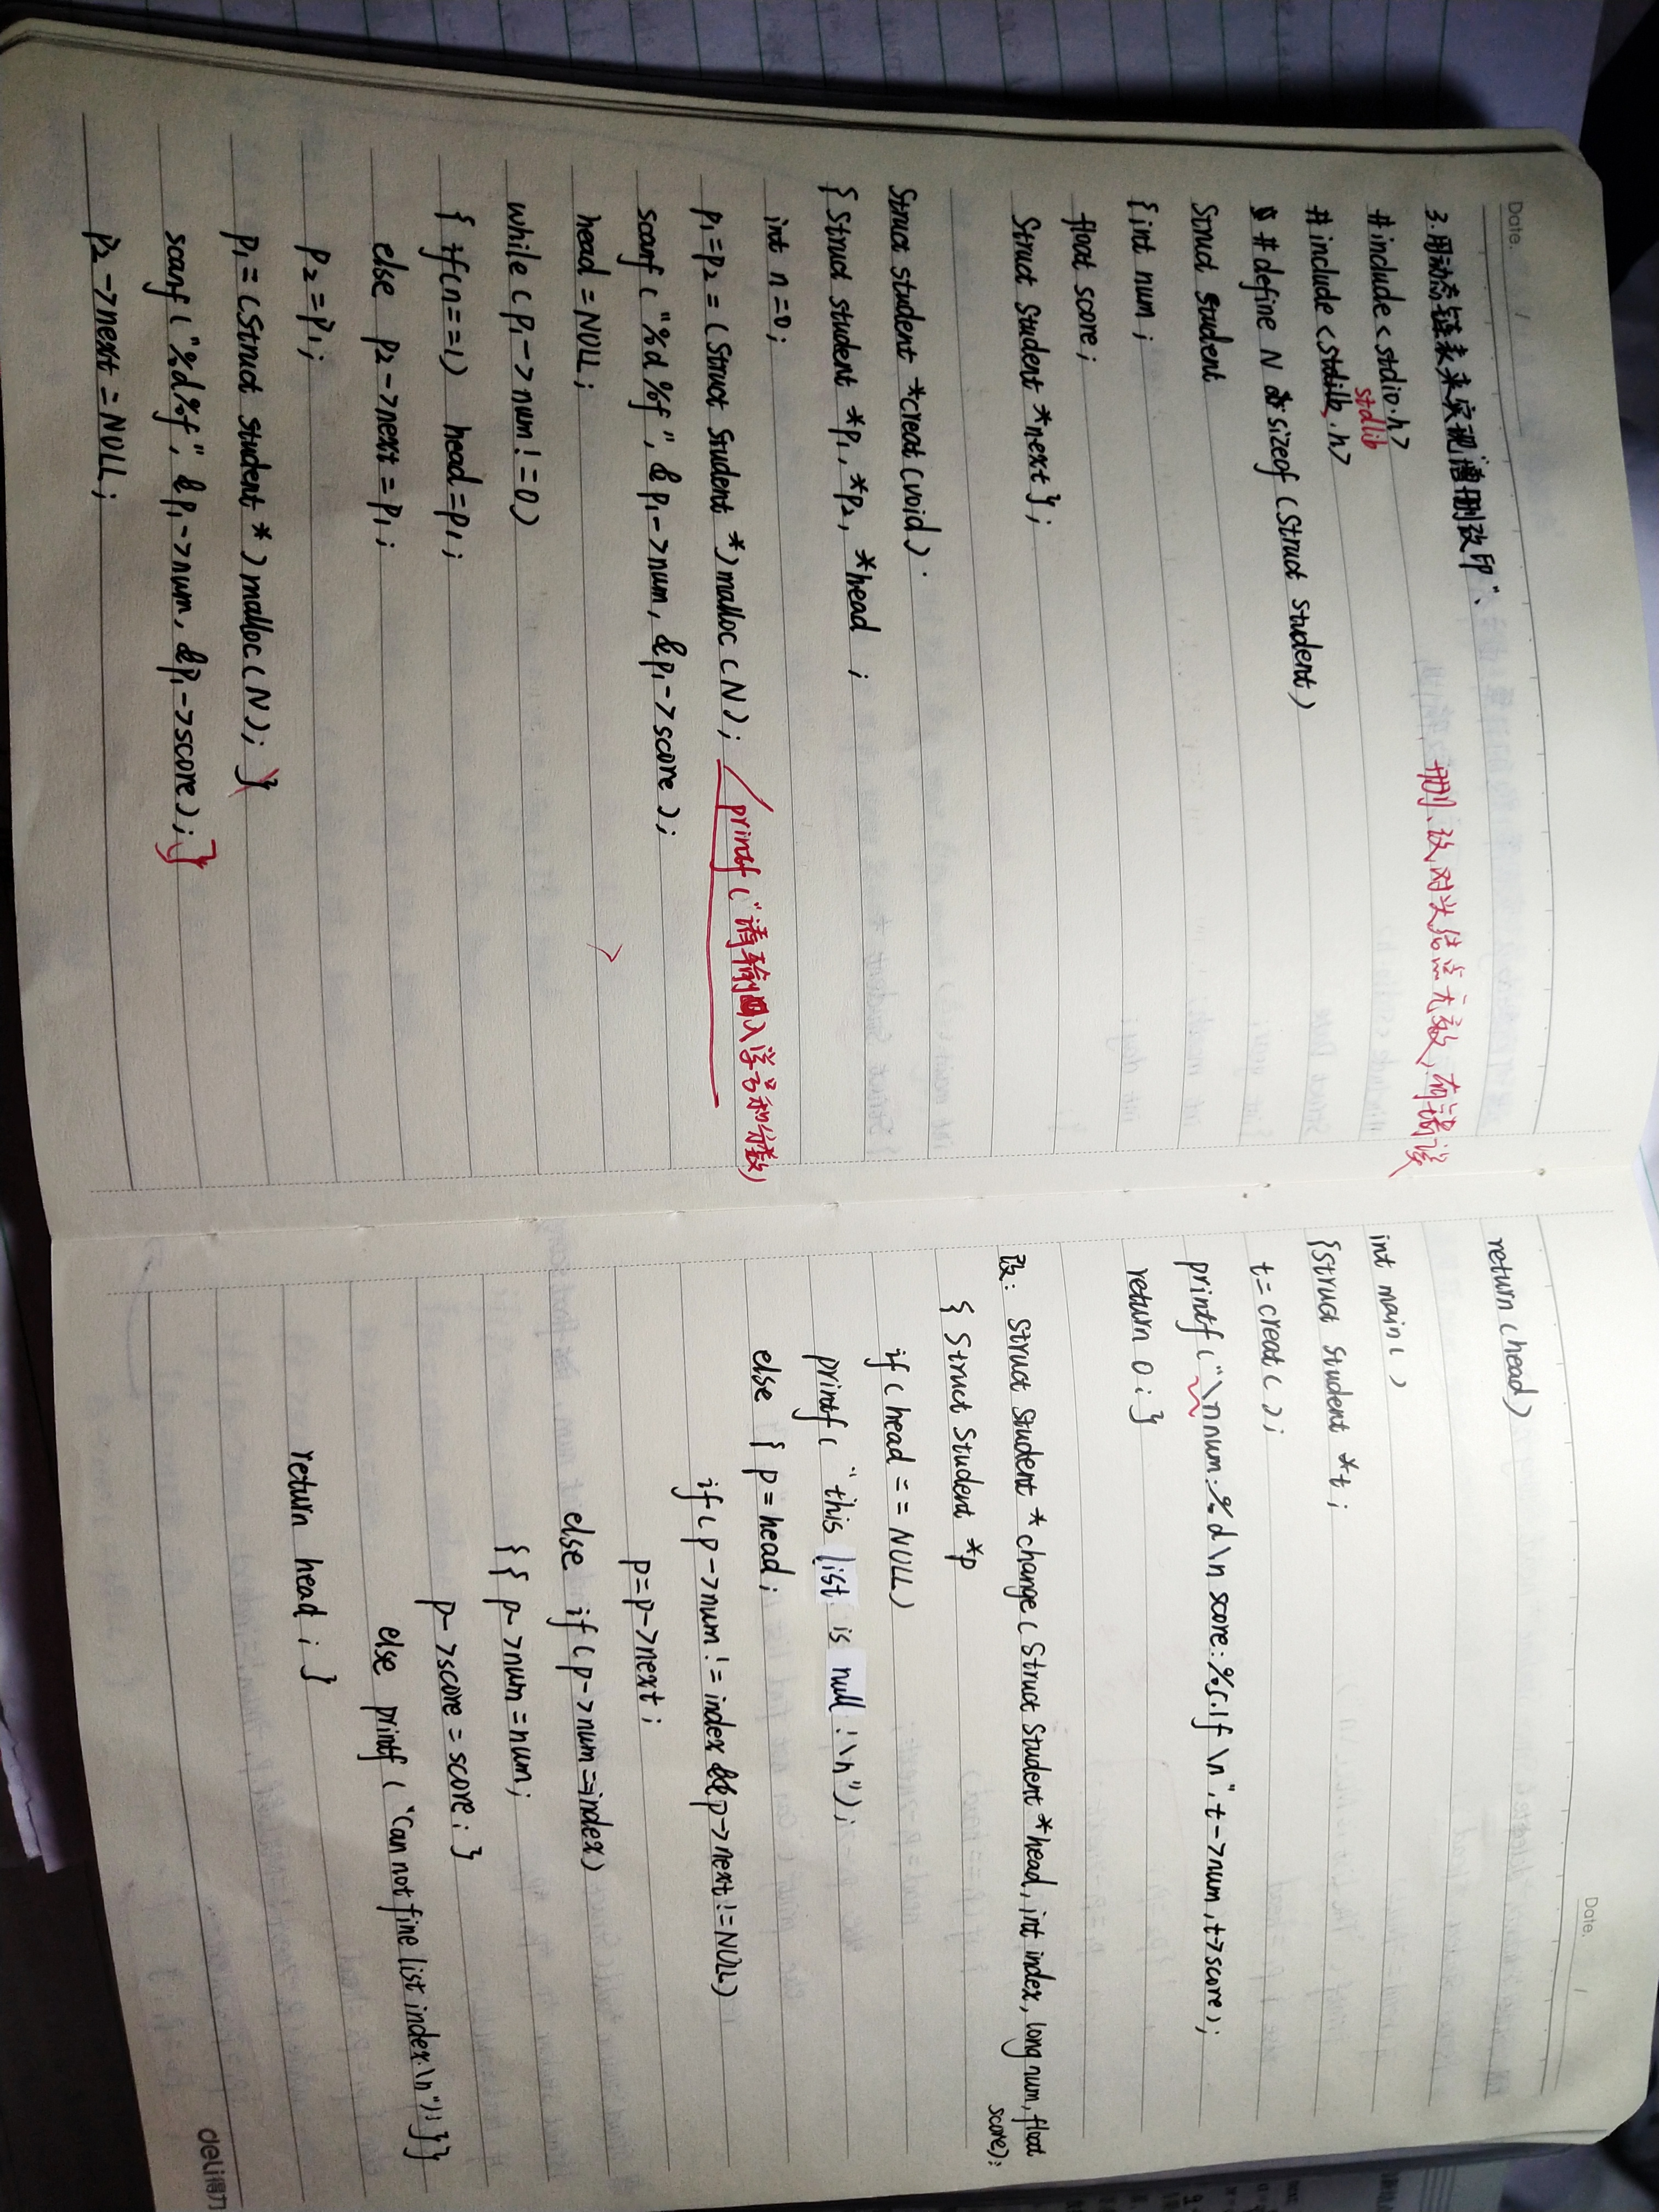 Date. /
3.用动态链表来实现"增删改印"、
删、改,对头结点无效,有错误
#include<stdio.h>
stdlib
#include<stdilb.h>
#define N sizeof(struct student)
Struct student
{int num;
float score;
Struct Student *next};
Struct student *creat(void).
{Struct student *p1,*p2,*head;
int n=0;
p1=p2=(Struct Student *)malloc(N); printf("请输入学号和分数)
scanf("%d%f",&p1->num,&p1->score);
head=NULL;
while(p1->num!=0)
{if(n==1) head=p1;
else p2->next=p1;
p2=p1;
p1=(Struct student *)malloc(N);}
scanf("%d%f",&p1->num,&p1->score);}
p2->next=NULL;
Date. /
return(head)
int main()
{Struct Student *t;
t=creat();
printf("\nnum:%d\n score:%5.1f\n",t->num,t->score);
return 0;}
改: Struct Student *change(Struct Student *head,int index,long num,float
score);
{Struct Student *p
if(head==NULL)
printf("this list is null!\n");
else {p=head;
if(p->num!=index&&p->next!=NULL)
p=p->next;
else if(p->num==index)
{{p->num=num;
p->score=score;}
else printf("Can not fine list index\n");}}
return head;}
deli得力